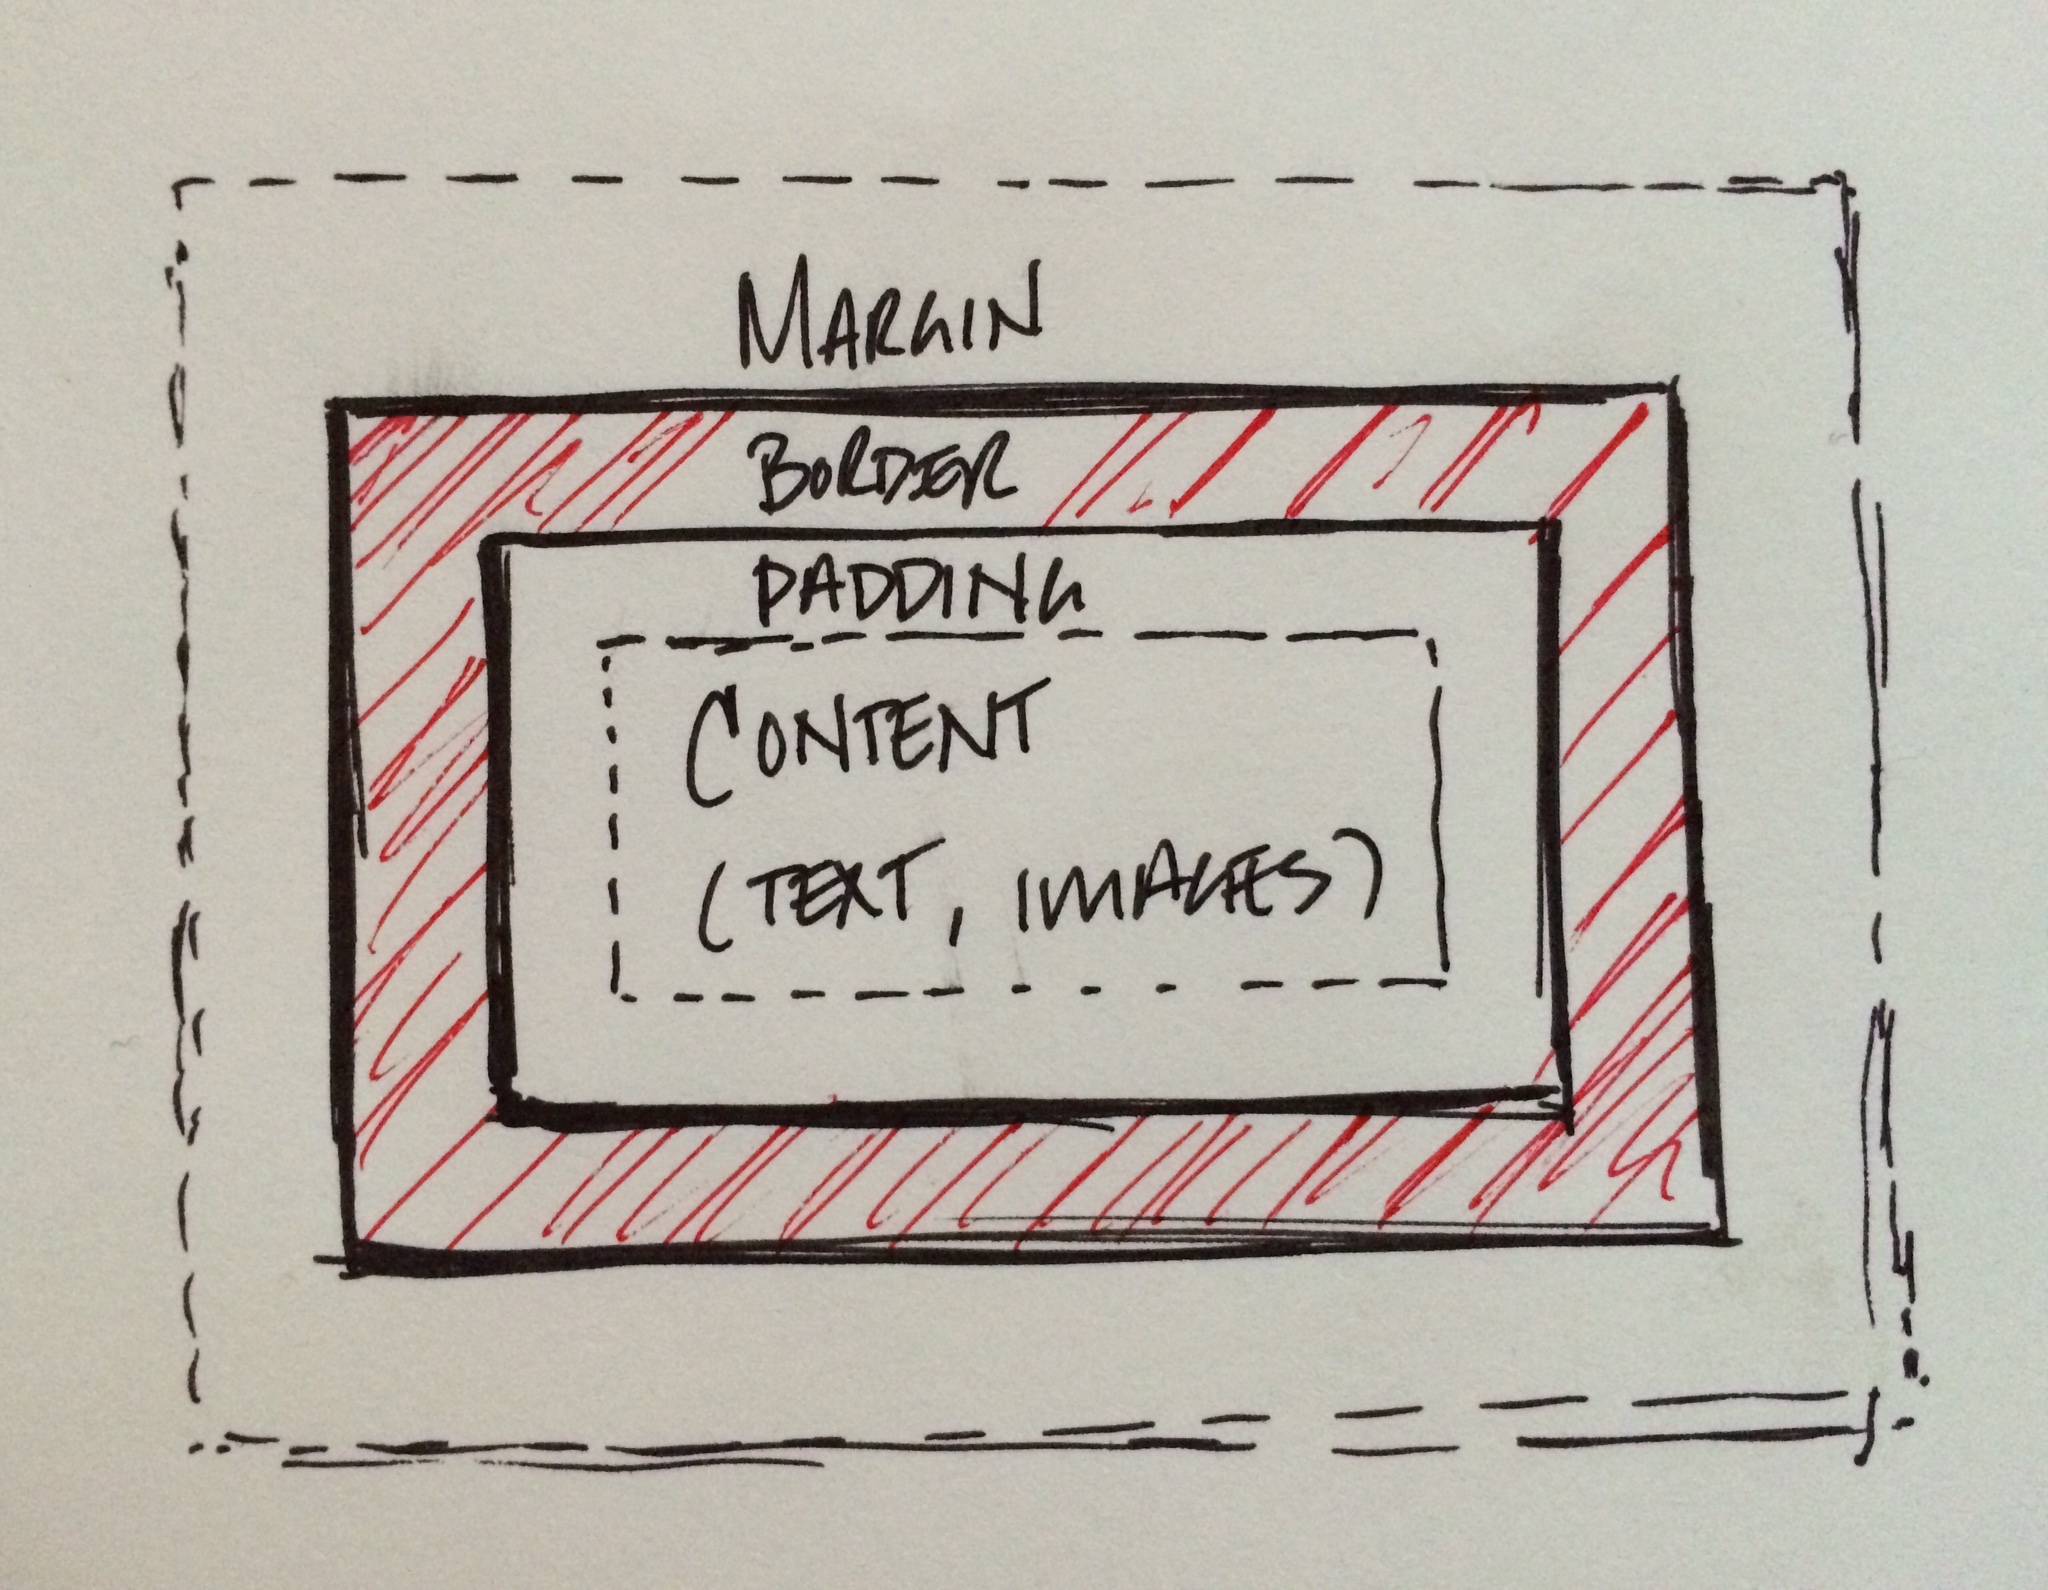 MARGIN
BORDER
PADDING
CONTENT
(TEXT, IMAGES)